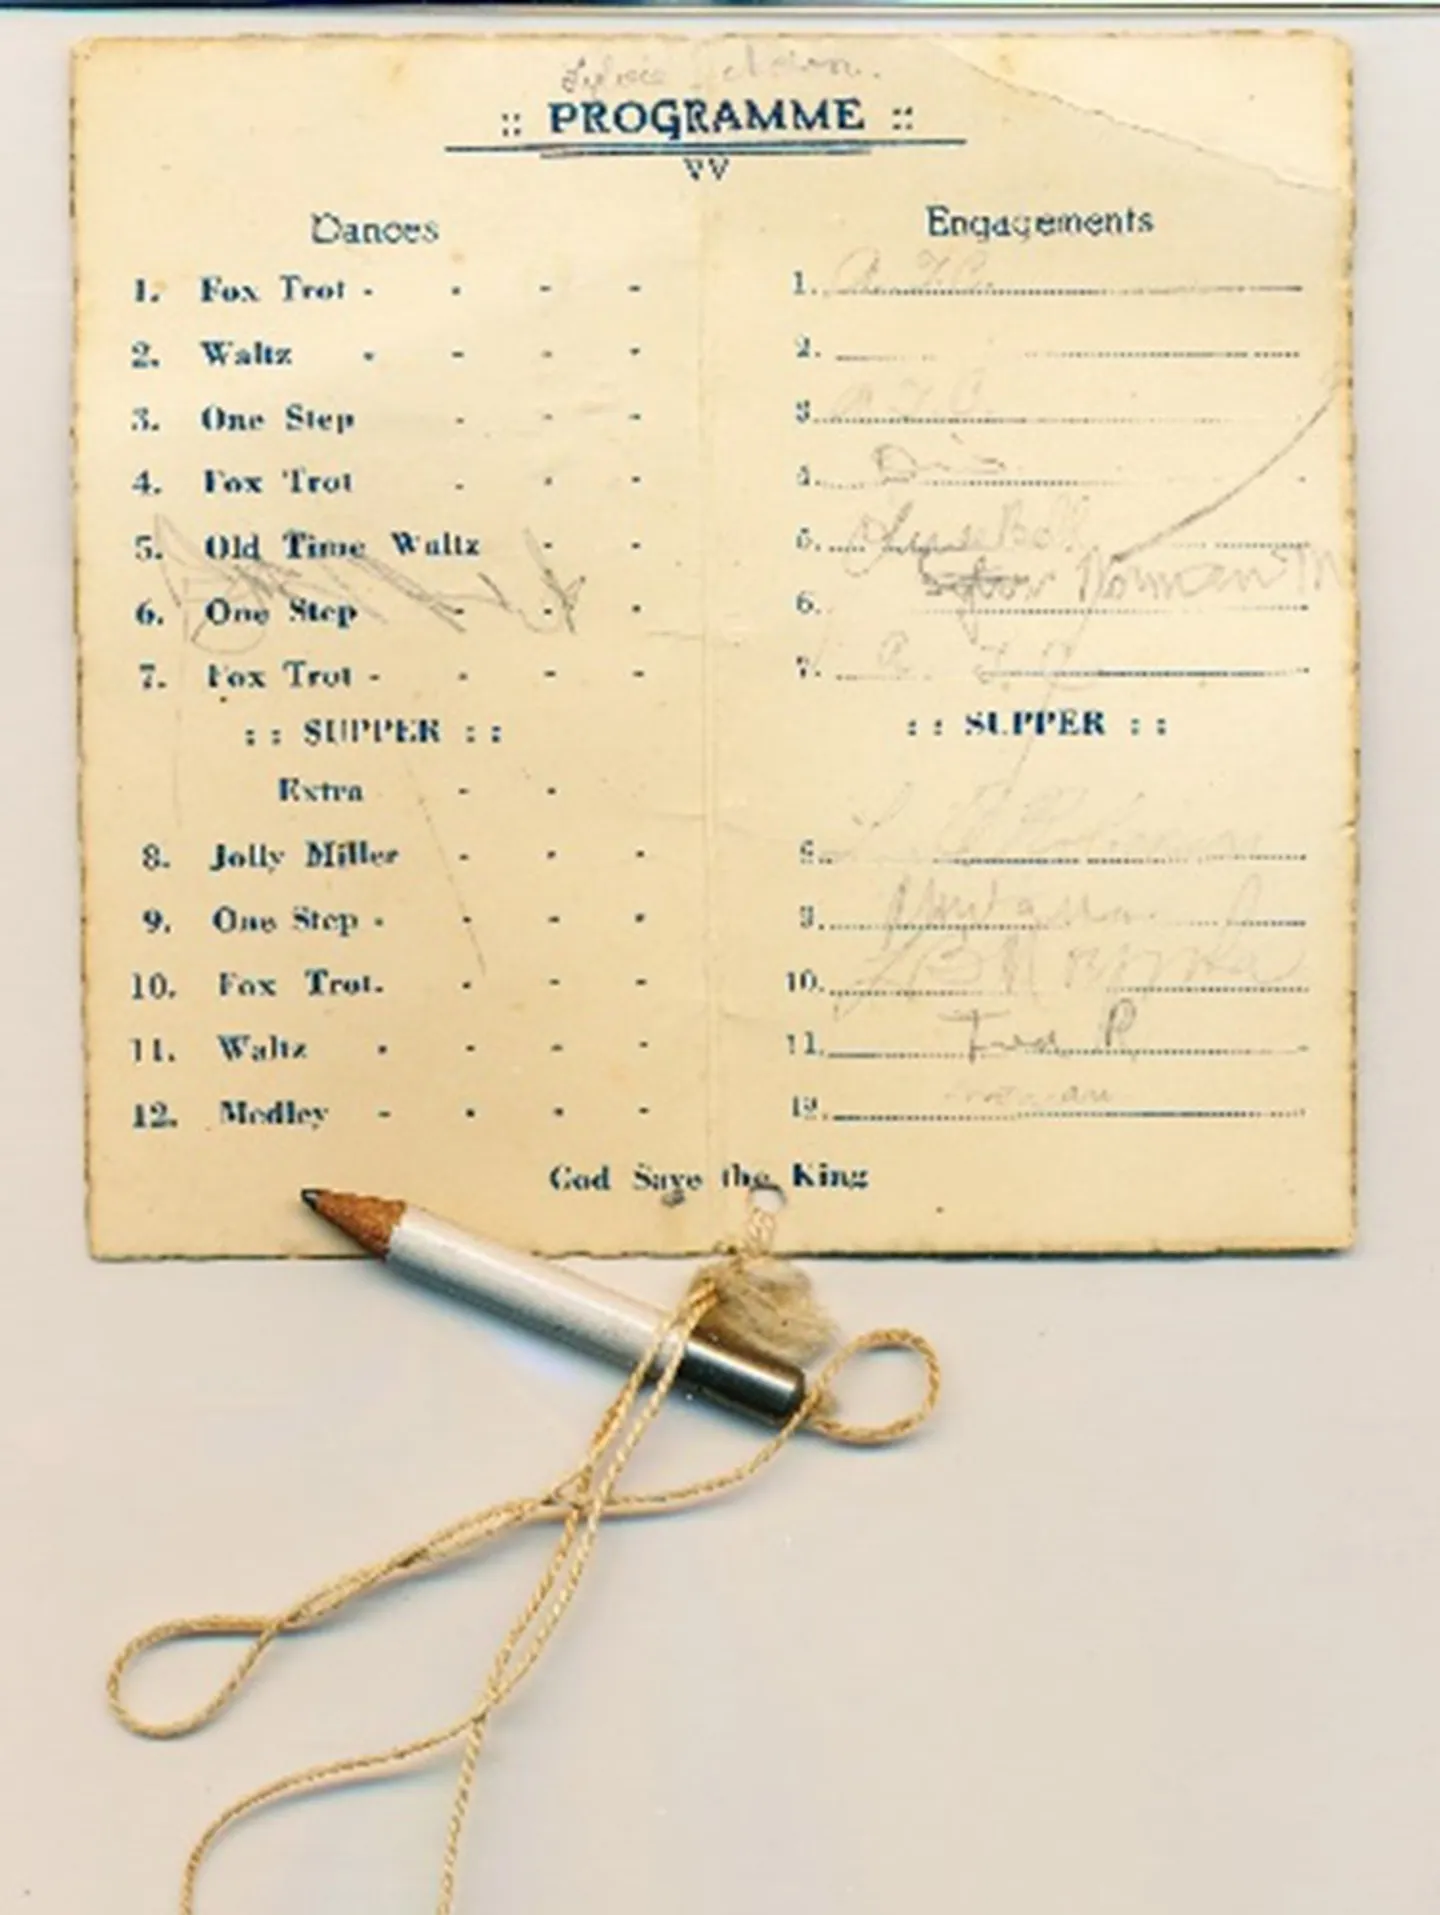 :: PROGRAMME ::
Dances
1. Fox Trot - - - -
2. Waltz - - - -
3. One Step - - -
4. Fox Trot - - -
5. Old Time Waltz - -
6. One Step - - -
7. Fox Trot - - - -
:: SUPPER ::
Extra - -
8. Jolly Miller - - -
9. One Step - - - -
10. Fox Trot. - - -
11. Waltz - - - -
12. Medley - - - -
Engagements
1. R. F.C.
2.
3. F.C.
4.
5.
6. Norman M
7. R. F. C
:: SUPPER ::
8.
9.
10.
11. Fred R
12.
God Save the King